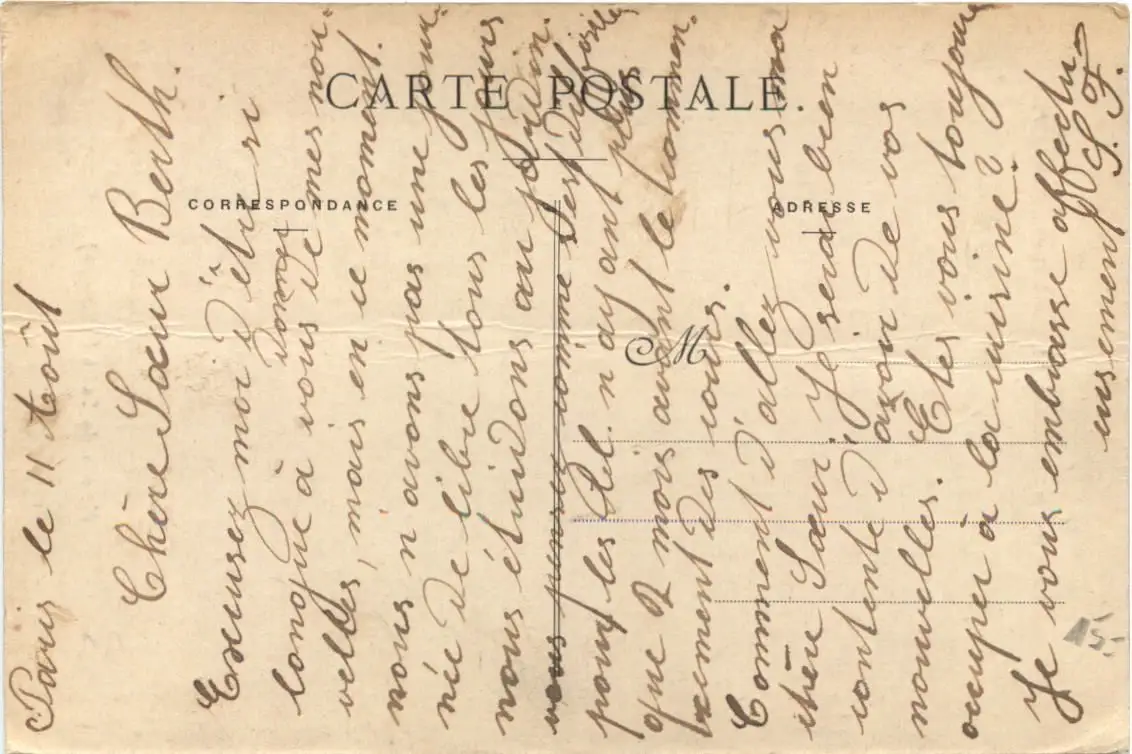 CARTE POSTALE.
CORRESPONDANCE
ADRESSE
M
Paris le 11 Août
Chère Sœur Berth.
Excusez moi d'être si
longue à vous donner de mes nou-
velles, mais en ce moment.
nous n'avons pas une jour-
née de libre tous les jours
nous étuidons au jardin.
vous pensez même c'est difficile
pour les Cel. n'ayant plus
que 2 mois avant le commen-
cement des cours.
Comment d'allez vous ma
chère Sœur, je serai bien
contente d'avoir de vos
nouvelles. Etes vous toujours
occuper à la cuisine?
Je vous embrasse affectu-
eusement S. F.
15.-